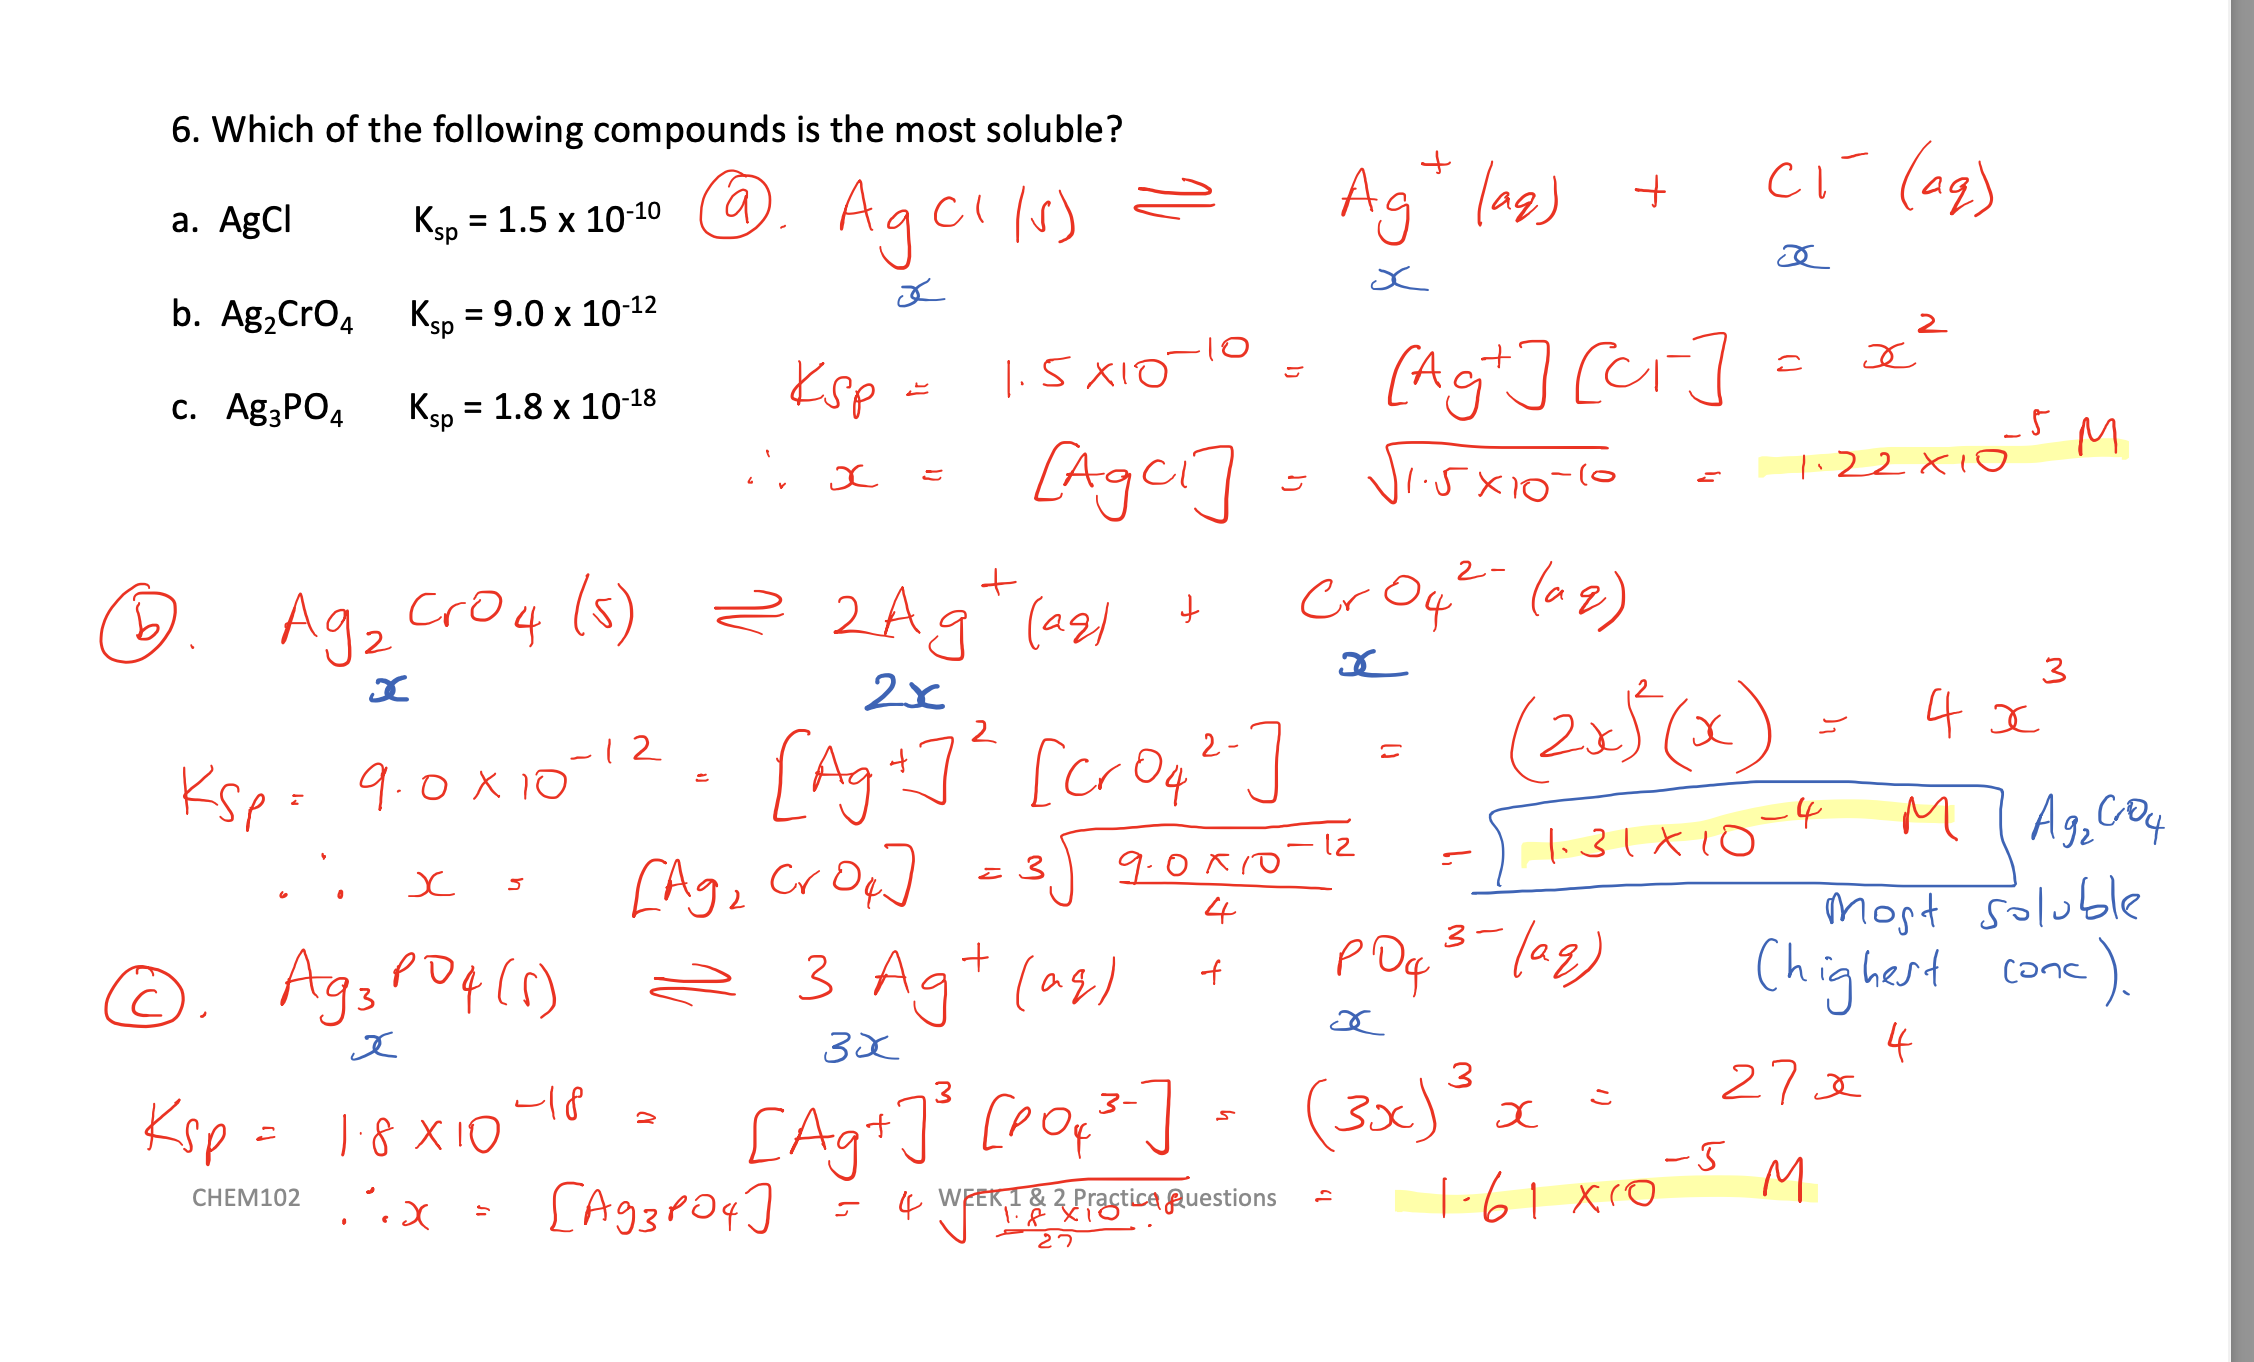 6. Which of the following compounds is the most soluble?
a. AgCl Ksp = 1.5 x 10⁻¹⁰
b. Ag₂CrO₄ Ksp = 9.0 x 10⁻¹²
c. Ag₃PO₄ Ksp = 1.8 x 10⁻¹⁸
ⓐ. AgCl (s) ⇌ Ag⁺ (aq) + Cl⁻ (aq)
x x x
Ksp = 1.5 x10⁻¹⁰ = [Ag⁺] [Cl⁻] = x²
∴ x = [AgCl] = √1.5 x10⁻¹⁰ = 1.22 x10⁻⁵ M
ⓑ. Ag₂CrO₄ (s) ⇌ 2Ag⁺ (aq) + CrO₄²⁻ (aq)
x 2x x
Ksp = 9.0 x 10⁻¹² = [Ag⁺]² [CrO₄²⁻] = (2x)²(x) = 4x³
∴ x = [Ag₂CrO₄] = ³√(9.0 x10⁻¹²/4) = 1.31 x10⁻⁴ M Ag₂CrO₄
most soluble
(highest conc).
ⓒ. Ag₃PO₄ (s) ⇌ 3 Ag⁺ (aq) + PO₄³⁻ (aq)
x 3x x
Ksp = 1.8 x10⁻¹⁸ = [Ag⁺]³ [PO₄³⁻] = (3x)³ x = 27x⁴
∴ x = [Ag₃PO₄] = ⁴√(1.8 x10⁻¹⁸/27) = 1.61 x10⁻⁵ M
CHEM102 WEEK 1 & 2 Practice Questions